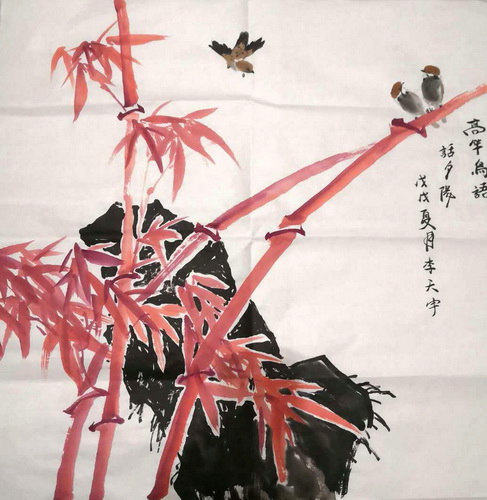 高竿鸟語
話夕陽
戊戌夏月李天宇